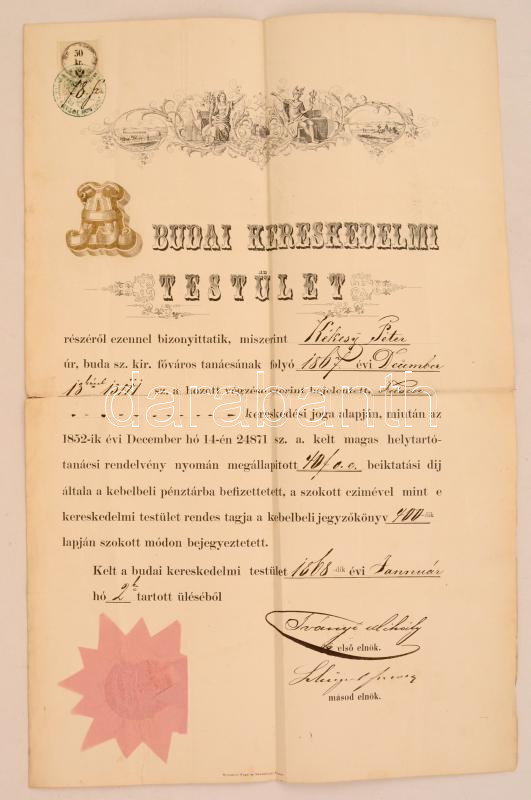 50
kr.
A
BUDAI KERESKEDELMI
TESTÜLET
részéről ezennel bizonyittatik, miszerint Kékesy Péter
úr, buda sz. kir. főváros tanácsának folyó 1867 évi December
13 sz. a. hozott végzése szerint bejelentett,
kereskedési joga alapján, miután az
1852-ik évi December hó 14-én 24871 sz. a. kelt magas helytartó-
tanácsi rendelvény nyomán megállapitott 40 f o. é. beiktatási dij
általa a kebelbeli pénztárba befizettetett, a szokott czimével mint e
kereskedelmi testület rendes tagja a kebelbeli jegyzőkönyv 400-dik
lapján szokott módon bejegyeztetett.
Kelt a budai kereskedelmi testület 1868-dik évi Jannuár
hó 2 tartott üléséből
Iványi Mihály
első elnök.
másod elnök.
darabanth.com